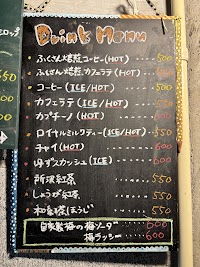 Drink Menu
ふくさん焙煎コーヒー(HOT) 500
ふくさん焙煎カフェラテ(HOT) 550
コーヒー(ICE/HOT) 500
カフェラテ(ICE/HOT) 550
カプチーノ(HOT) 600
ロイヤルミルクティー(ICE/HOT) 550
チャイ(HOT) 600
ゆずスカッシュ(ICE) 600
紅茶 550
しょうが紅茶 550
和紅茶 ほうじ 550
自家製梅の梅ソーダ 600
梅ラッシー 600